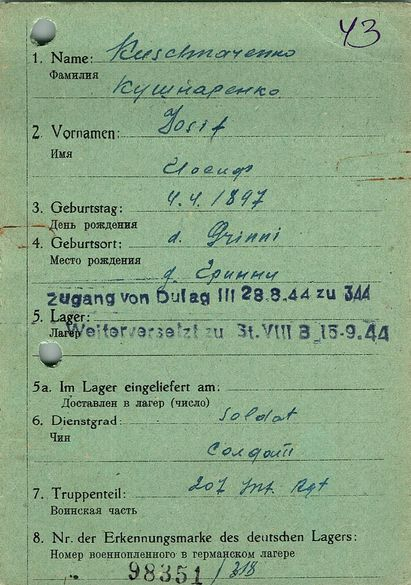 43
1. Name: Kuschnarenko
Фамилия
Кушнаренко
2. Vornamen: Iosif
Имя
Иосиф
3. Geburtstag: 4.4.1897
День рождения
4. Geburtsort: d. Grinni
Место рождения
д. Гринни
Zugang von Dulag III 28.8.44 zu 344
5. Lager:
Лагерь
Weiterversetzt zu St.VIII B 15-9.44
5a. Im Lager eingeliefert am:
Доставлен в лагерь (число)
6. Dienstgrad: Soldat
Чин
Солдат
7. Truppenteil: 207 Inf. Rgt
Воинская часть
8. Nr. der Erkennungsmarke des deutschen Lagers:
Номер военнопленного в германском лагере
98351 / 318